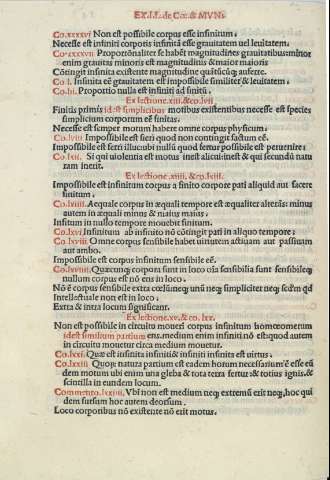 EX.I.L. de Cœ. & MVN:
Co. xxxxvi Non est possibile corpus esse infinitum.
Necesse est infiniti corporis infinitā esse grauitatem uel leuitatem.
Co. xxxxvii Proportōnaliter se habēt magnitudines grauitatibus: minor
enim grauitas minoris est magnitudinis & maior maioris
Cōtingit infinita existente magnitudine quātūcūq; auferre.
Co. l. Infinita eē grauitatem est impossibile similiter & leuitatem.
Co. li. Proportio nulla est infiniti ad finitū.
Ex lectione xiii. & co. lvii
Finitis primis idest simplicibus motibus existentibus necesse est species
simplicium corporum eē finitas.
Necesse est semper motum habere omne corpus physicum.
Co. lviii Impossibile est fieri quod non contingit factum eē.
Impossibile est ferri illucubi nullū quod fertur possibile est peruenire:
Co. lxii. Si qui uiolentia est motus inest alicui: inest & qui secundū natu
ram inerit.
Ex lectione. xiiii. & co. lxiii.
Impossibile est infinitum corpus a finito corpore pati aliquid aut facere
finitum.
Co. lxiiii. Aequale corpus in æquali tempore est æqualiter alterās: minus
autem in æquali minus & maius maius.
Infitum in nullo tempore mouebit finitum.
Co. lxvi Infinitum ab infinito nō cōtingit pati in aliquo tempore:
Co. lxviii Omne corpus sensibile habet uirtutem actiuam aut passiuam
aut ambo.
Impossibile est corpus infinitum sensibile eē.
Co. lxviiii. Quæcunq; corpora sunt in loco oīa sensibilia sunt sensibileq;
nullum corpus est nō ens in loco.
Nō ē corpus sensibile extra cœlū neq; unū neq; simplicitet neq; scdm qd
Intellectuale non est in loco.
Extra & intra locum significant.
Ex lectione. xv. & co. lxx.
Non est possibile in circuitu moueri corpus infinitum homœomerum
idest similium partium eius. medium enim infiniti nō est: quod autem
in circuitu mouetur circa medium mouetur.
Co. lxxi. Quæ est infinita infiniti & infiniti infinita est uirtus.
Co. lxxiii Quoq; natura partium est eadem horum necessarium ē esse eū
dem motum ubi enim una gleba & tota terra fertur: & totius ignis. &
scintilla in eundem locum.
Commento. lxxiiii. Vbi non est medium neq; extremū erit neq; hoc qui
dem sursum hoc autem deorsum.
Loco corporibus nō existente nō erit motus.